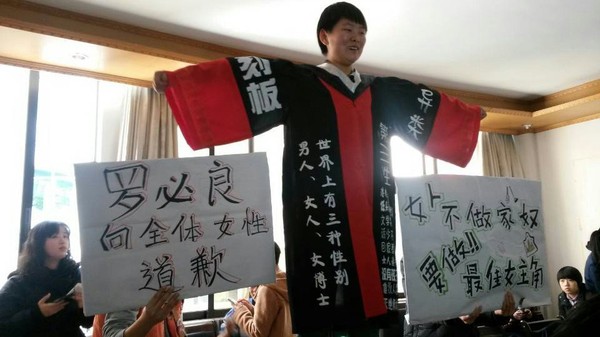 刻板
异类
世界上有三种性别
男人、女人、女博士
第二性
罗必良
向全体女性
道歉
女卜不做家奴
要做!!
最佳女主角